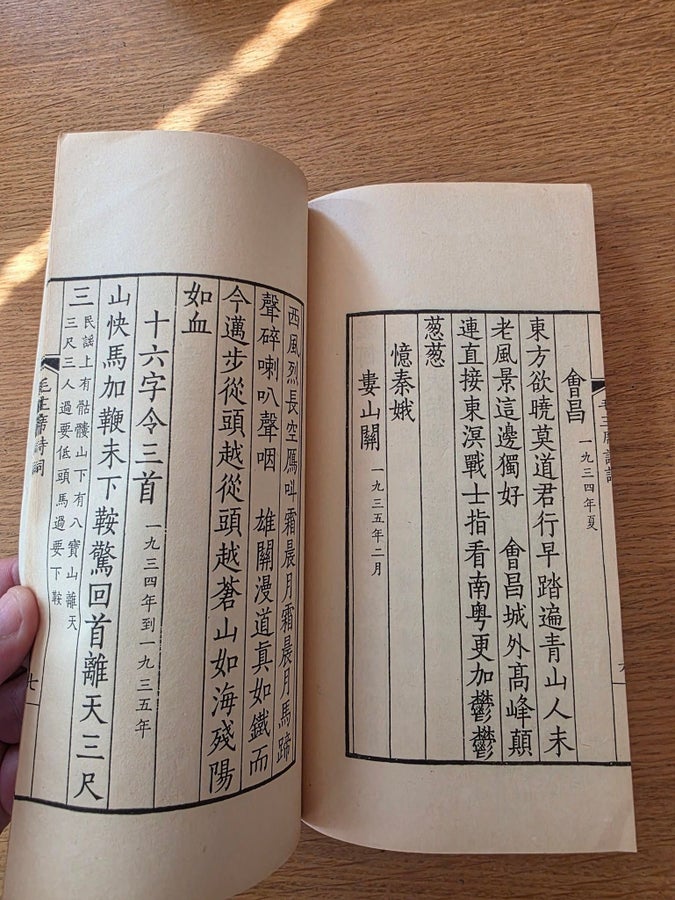 會昌 一九三四年夏
東方欲曉莫道君行早 踏遍青山人未
老風景這邊獨好 會昌城外高峰顛
連直接東溟戰士指看南粵更加鬱鬱
葱葱
憶秦娥
婁山關 一九三五年二月
西風烈長空鴈叫霜晨月霜晨月馬蹄
聲碎喇叭聲咽 雄關漫道真如鐵而
今邁步從頭越從頭越蒼山如海殘陽
如血
十六字令三首 一九三四年到一九三五年
山快馬加鞭未下鞍驚回首離天三尺
三 民謠上有骷髏山下有八寶山離天
三尺三人過要低頭馬過要下鞍
毛主席詩詞
七